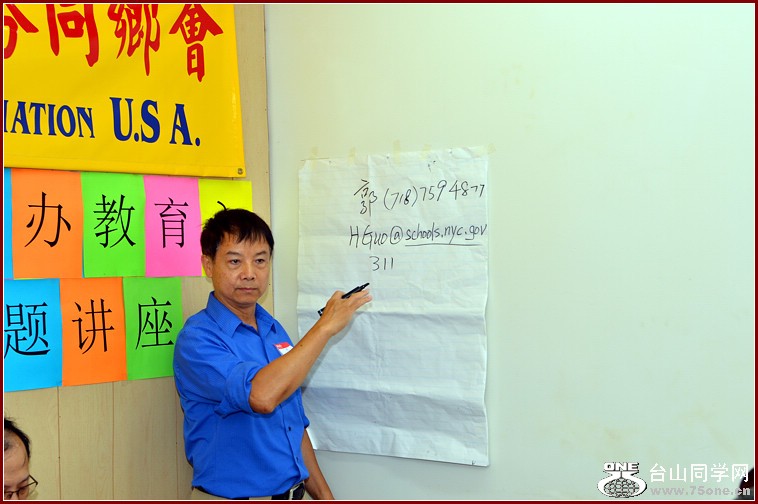 同鄉會
IATION U.S.A.
办教育
题讲座
郭 (718) 7594877
HGuo@schools.nyc.gov
311
ONE
台山同学网
www.75one.cn